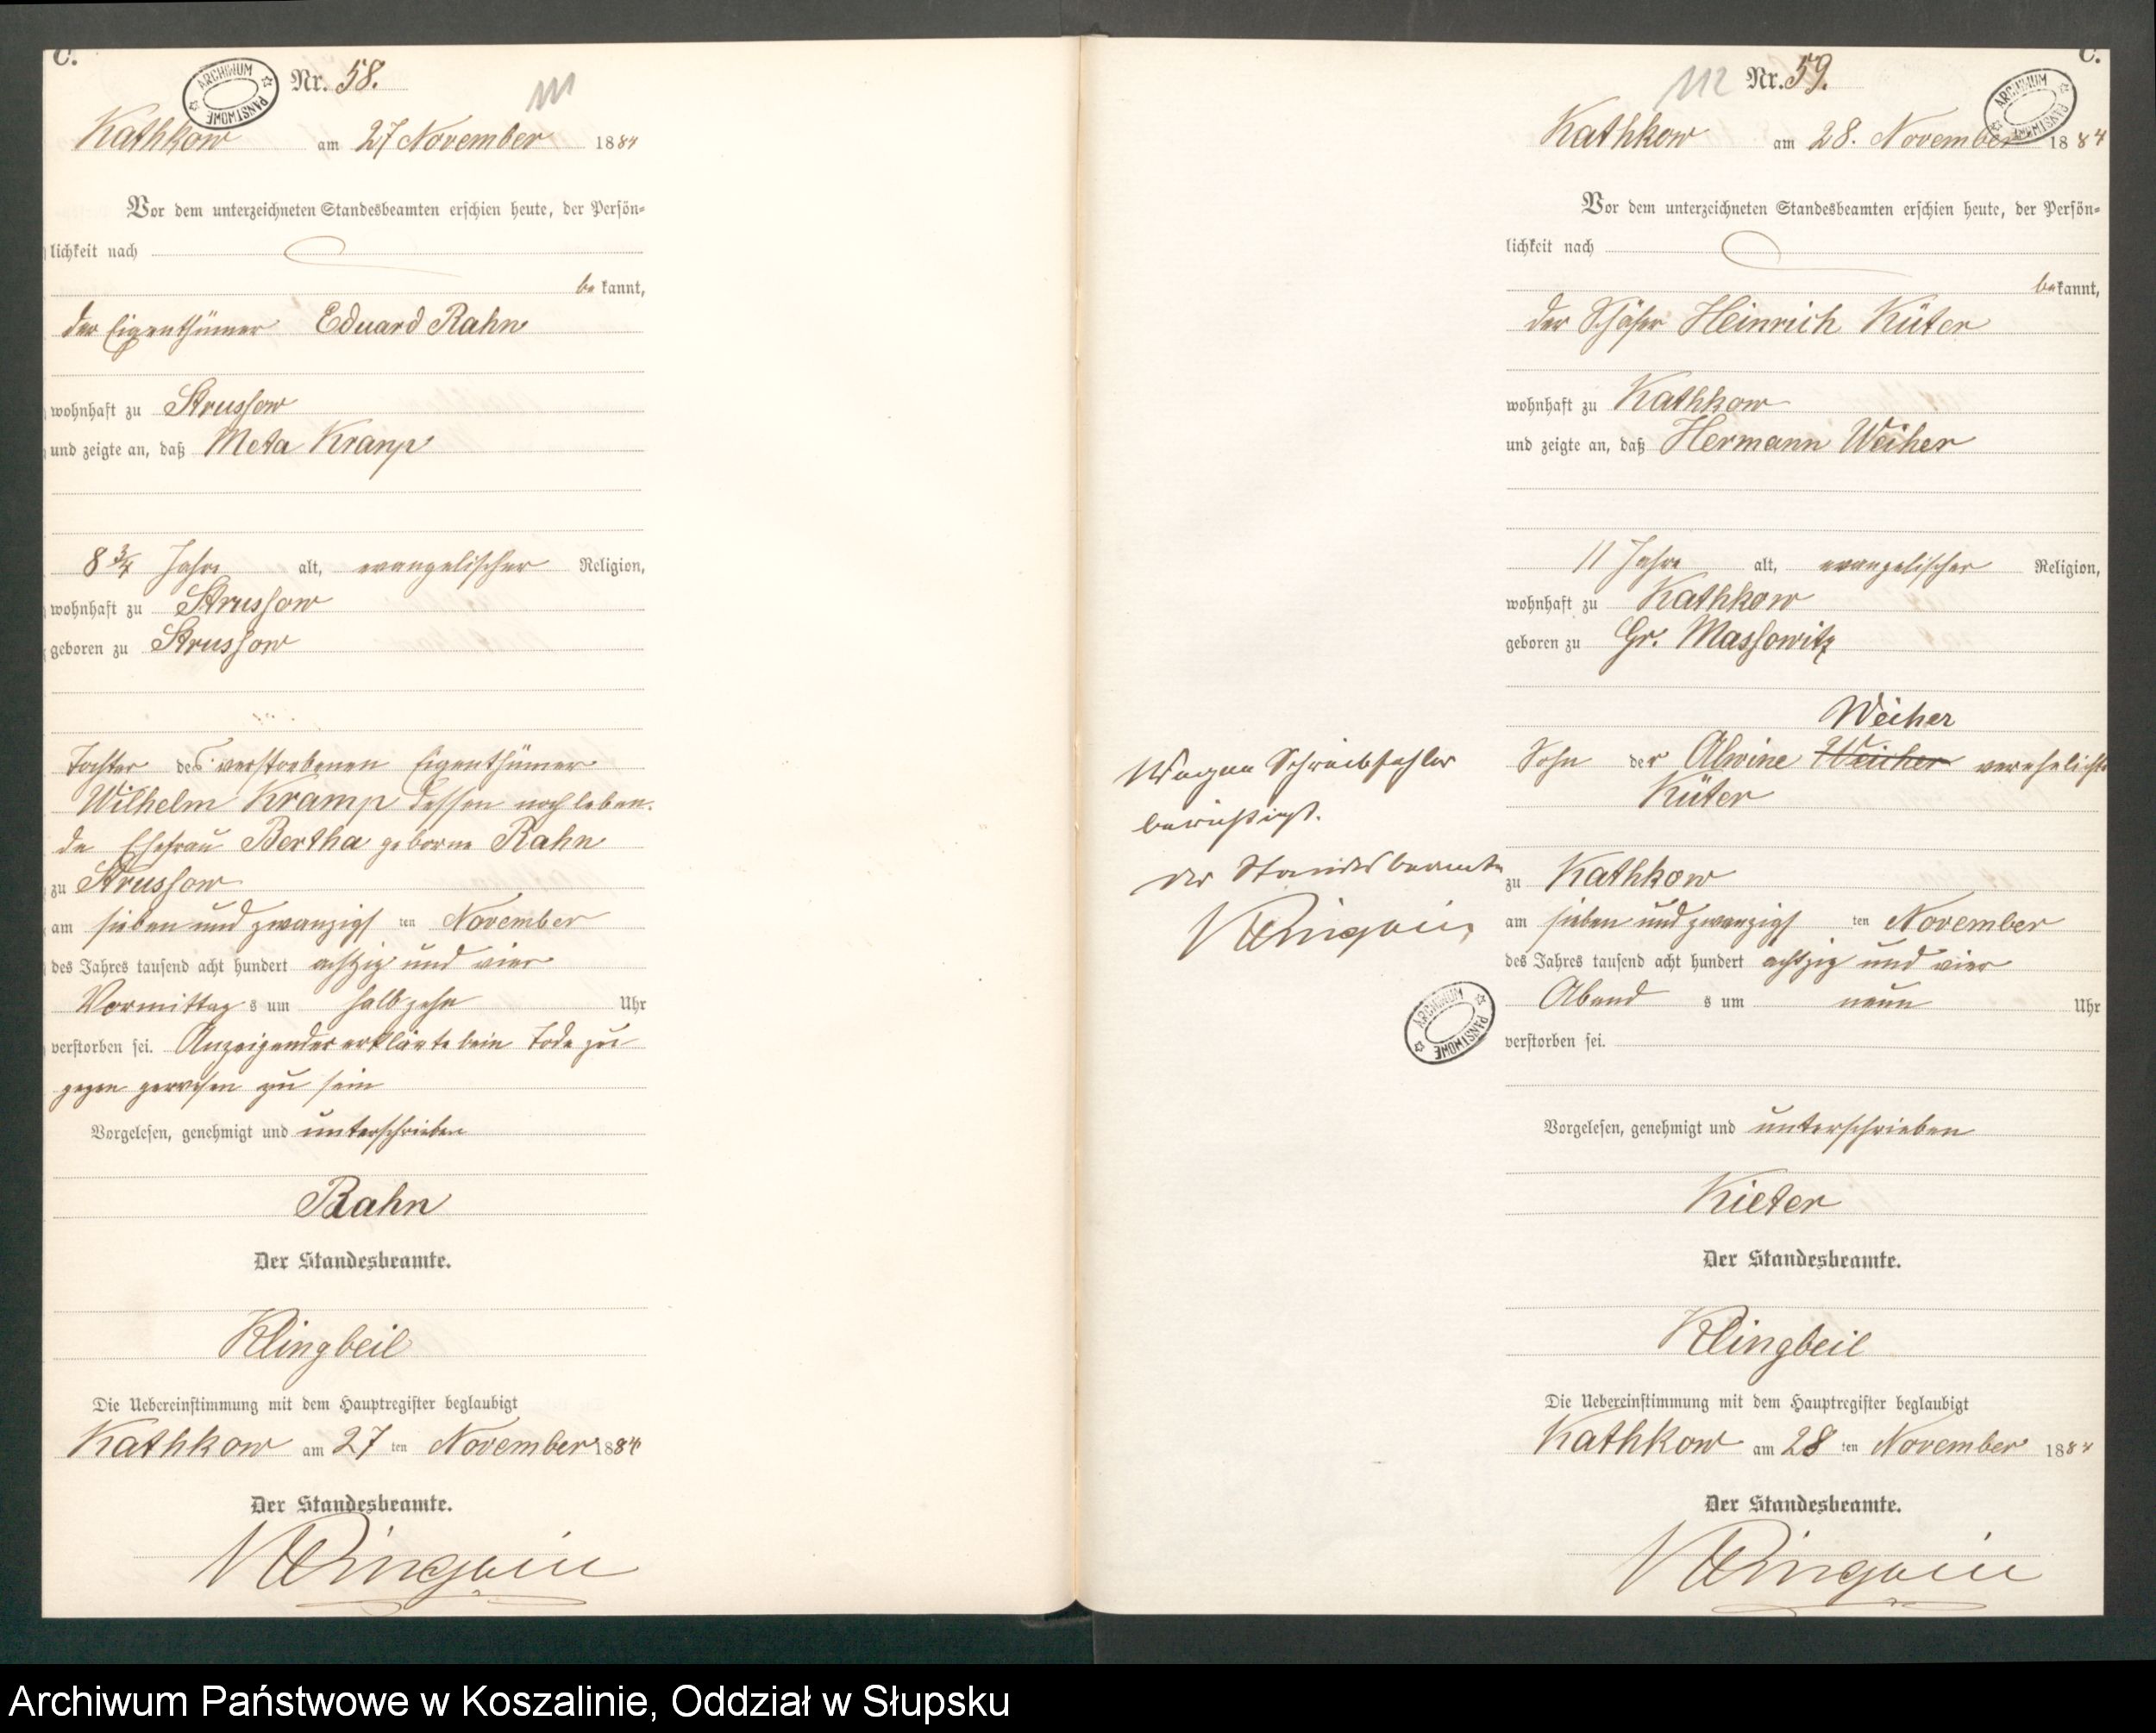 C.
ARCHIWUM PAŃSTWOWE
Nr. 58.
111
Kathkow am 27 November 1884
Vor dem unterzeichneten Standesbeamten erschien heute, der Persön=
lichkeit nach
be kannt,
der Eigenthümer Eduard Rahn
wohnhaft zu Strussow
und zeigte an, daß Meta Kramp
8 3/4 Jahre alt, evangelischer Religion,
wohnhaft zu Strussow
geboren zu Strussow
Tochter des verstorbenen Eigenthümer
Wilhelm Kramp dessen noch leben-
de Ehefrau Bertha geborne Rahn
zu Strussow
am sieben und zwanzigs ten November
des Jahres tausend acht hundert achtzig und vier
Vormittag s um halb zehn Uhr
verstorben sei. Anzeigender erklärte beim Tode zu
gegen gewesen zu sein
Vorgelesen, genehmigt und unterschrieben
Rahn
Der Standesbeamte.
Klingbeil
Die Uebereinstimmung mit dem Hauptregister beglaubigt
Kathkow am 27 ten November 1884
Der Standesbeamte.
Klingbeil
C.
ARCHIWUM PAŃSTWOWE
112
Nr. 59.
Kathkow am 28. November 1884
Vor dem unterzeichneten Standesbeamten erschien heute, der Persön=
lichkeit nach
be kannt,
der Schäfer Heinrich Küter
wohnhaft zu Kathkow
und zeigte an, daß Hermann Weiher
11 Jahre alt, evangelischer Religion,
wohnhaft zu Kathkow
geboren zu Gr. Massowitz
Weiher
Sohn der Alwine Weicher verehelichte
Küter
zu Kathkow
am sieben und zwanzigs ten November
des Jahres tausend acht hundert achtzig und vier
Abend s um neun Uhr
verstorben sei.
Vorgelesen, genehmigt und unterschrieben
Kieter
Der Standesbeamte.
Klingbeil
Die Uebereinstimmung mit dem Hauptregister beglaubigt
Kathkow am 28 ten November 1884
Der Standesbeamte.
Klingbeil
Wegen Schreibfehler
berichtigt.
Der Standesbeamte
Klingbeil
ARCHIWUM PAŃSTWOWE
Archiwum Państwowe w Koszalinie, Oddział w Słupsku